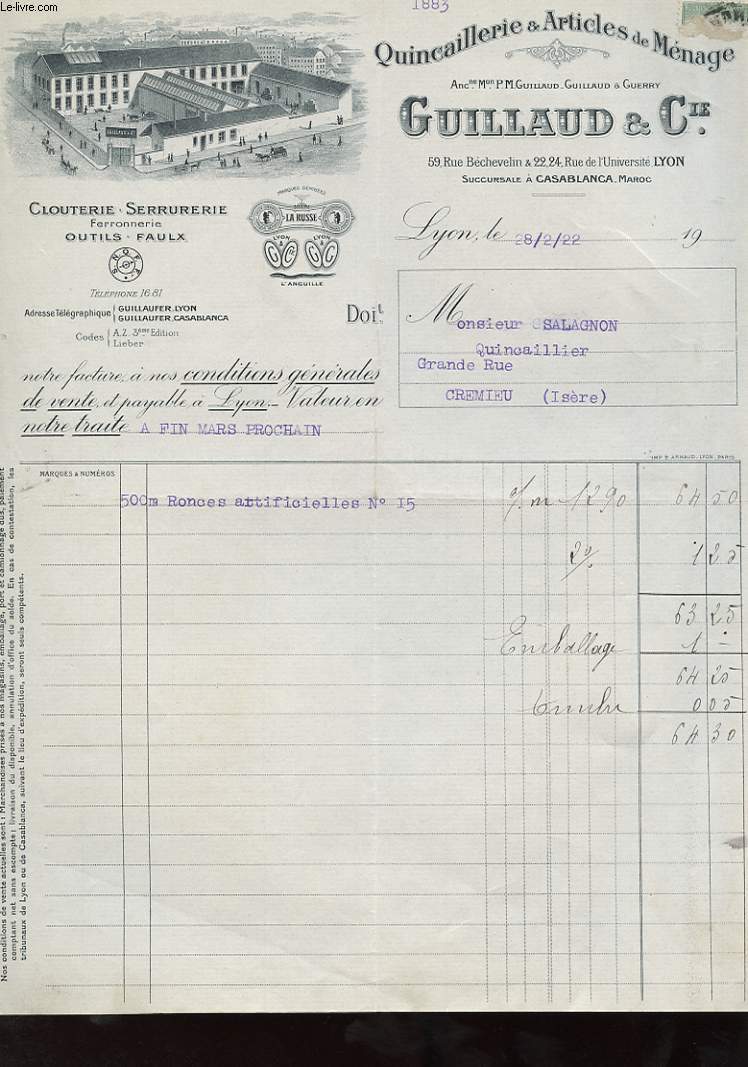 Le-livre.com
1883
Quincaillerie & Articles de Ménage
Ancne Mon P.M. Guillaud_Guillaud & Guerry
GUILLAUD & CIE.
59, Rue Béchevelin & 22,24, Rue de l'Université LYON
Succursale à CASABLANCA_Maroc
GUILLAUD & Cie
CLOUTERIE - SERRURERIE
Ferronnerie
OUTILS - FAULX
S.N.Q.F.F.
MARQUES DÉPOSÉES
LA RUSSE
LYON LYON
G & Cie G & G
L'ANGUILLE
TÉLÉPHONE 16.81
Adresse Télégraphique GUILLAUFER_LYON
GUILLAUFER_CASABLANCA
Codes A.Z. 3ème Edition
Lieber
Lyon, le 28/2/22 19
Doit
Monsieur SALAGNON
Quincaillier
Grande Rue
CREMIEU (Isère)
notre facture, à nos conditions générales
de vente, et payable à Lyon._ Valeur en
notre traite A FIN MARS PROCHAIN
IMP. B. ARNAUD_LYON_PARIS
MARQUES & NUMÉROS
500m Ronces artificielles N° 15 %m 12 90 64 50
2% 1 25
63 25
Emballage 1 -
64 25
Timbre 0 05
64 30
Nos conditions de vente actuelles sont : Marchandises prises à nos magasins, emballage, port et camionnage dûs, paiement
comptant net sans escompte ; livraison du disponible, annulation d'office du solde. En cas de contestation, les
tribunaux de Lyon ou de Casablanca, suivant le lieu d'expédition, seront seuls compétents.